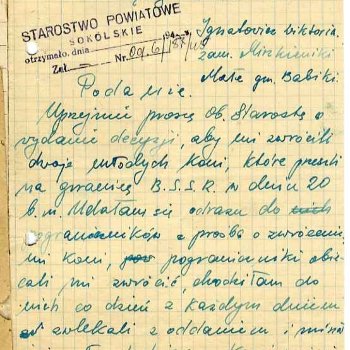 STAROSTWO POWIATOWE
SOKÓLSKIE
otrzymało, dnia 194
Zał. Nr. Og. 6/
Ignatowicz Wiktoria
zam. Miszkieniki
Małe gm. Babiki.
Podanie.
Uprzejmie proszę Ob. Starostę o
wydanie decyzji, aby mi zwrócili
dwoje młodych koni, które przeszli
na granicę B.S.S.R. w dniu 20
b.m. Udałam się odrazu do
pograniczników z prośbą o zwrócenie
mi koni, pograniczniki obie-
cali mi zwrócić, chodziłam do
nich co dzień z każdym dniem
zwlekali z oddaniem i